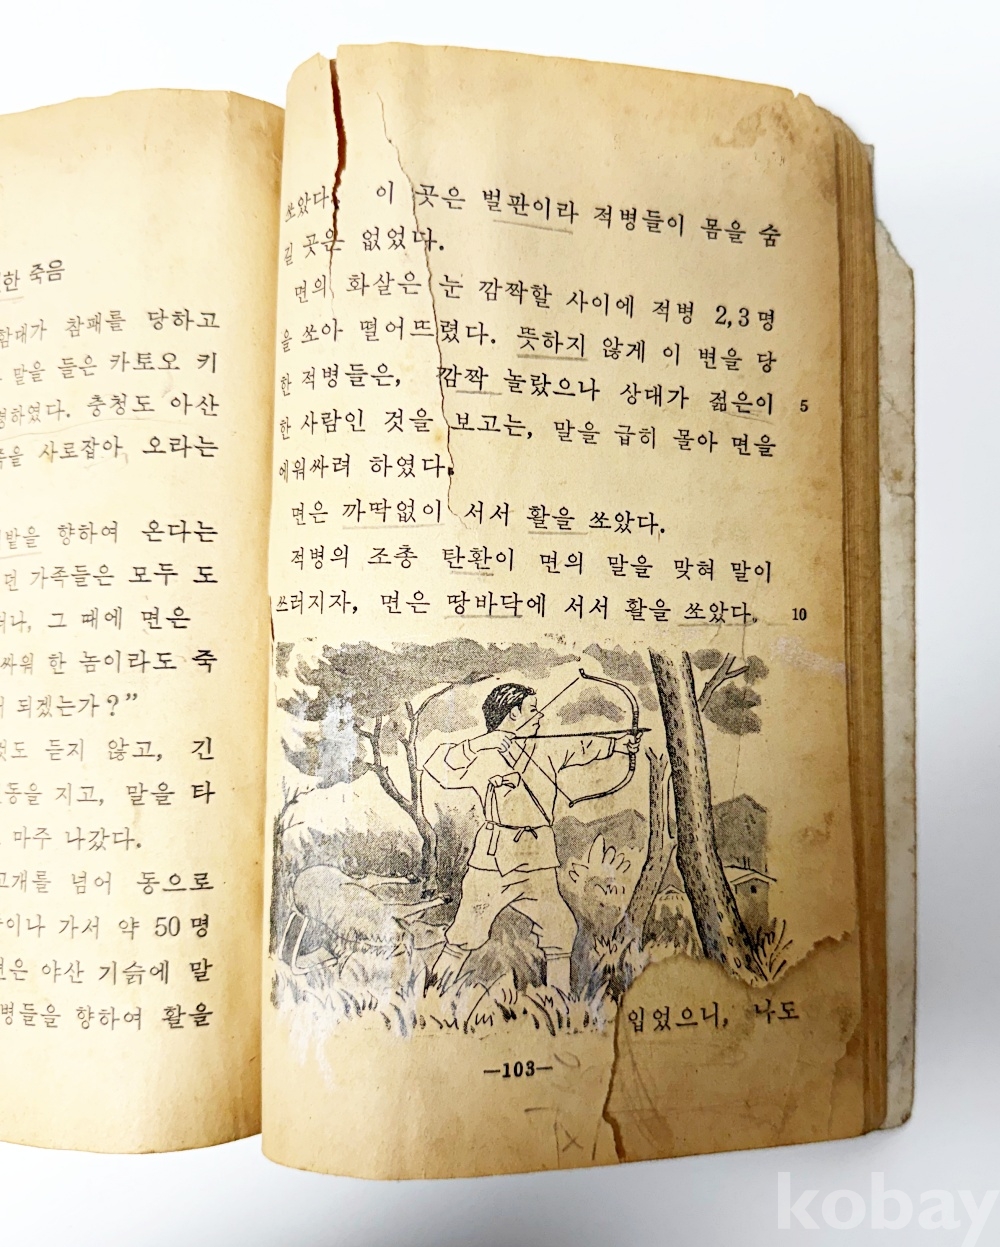 한 죽음
함대가 참패를 당하고
말을 들은 카토오 키
명하였다. 충청도 아산
족을 사로잡아 오라는
밭을 향하여 온다는
던 가족들은 모두 도
그 때에 면은
싸워 한 놈이라도 죽
되겠는가?”
것도 듣지 않고, 긴
동을 지고, 말을 타
마주 나갔다.
고개를 넘어 동으로
이나 가서 약 50명
면은 야산 기슭에 말
병들을 향하여 활을
쏘았다. 이 곳은 벌판이라 적병들이 몸을 숨
길 곳은 없었다.
면의 화살은 눈 깜짝할 사이에 적병 2,3명
을 쏘아 떨어뜨렸다. 뜻하지 않게 이 변을 당
한 적병들은, 깜짝 놀랐으나 상대가 젊은이 5
한 사람인 것을 보고는, 말을 급히 몰아 면을
에워싸려 하였다.
면은 까딱없이 서서 활을 쏘았다.
적병의 조총 탄환이 면의 말을 맞혀 말이
쓰러지자, 면은 땅바닥에 서서 활을 쏘았다. 10
입었으니, 나도
—103—
kobay